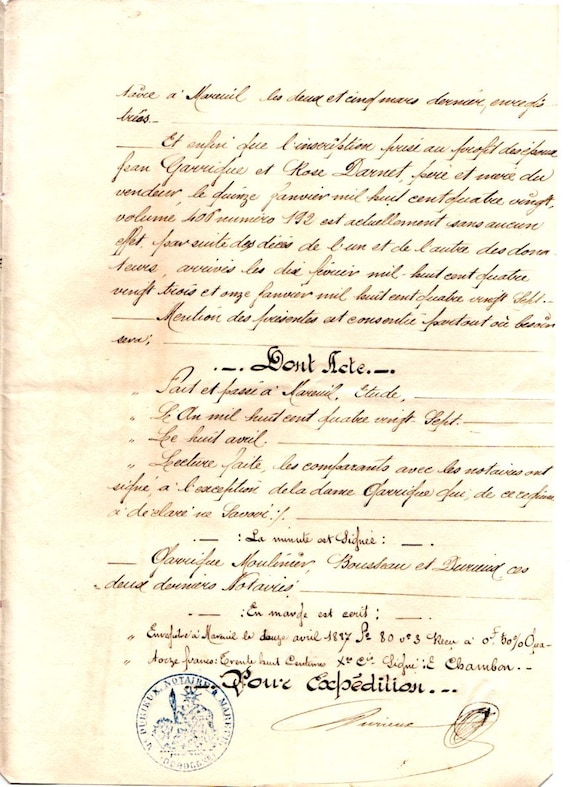 taire à Mareuil les deux et cinq mars dernier, enregis-
trés.
Et enfin que l'inscription prise au profit des époux
Jean Garrigue et Rose Darnet, père et mère du
vendeur, le quinze Janvier mil huit cent quatre vingt,
volume 408 numéro 192 est actuellement sans aucun
effet, par suite des décès de l'un et de l'autre des dona-
teurs, arrivés les dix février mil huit cent quatre
vingt trois et onze Janvier mil huit cent quatre vingt Sept.
Mention des présentes est consentie partout où besoin
sera;
.-. Dont Acte.-.
" Fait et passé à Mareuil, Etude,
" L'An mil huit cent quatre vingt Sept.
" Le huit avril.
" Lecture faite, les comparants avec les notaires ont
signé, à l'exception de la dame Garrigue qui, de ce requise
à déclaré ne Savoir ./.
: La minute est Signée :
Garrigue Moulinier, Bousseau et Durieux, ces
deux derniers Notaires
: En marge est écrit :
" Enregistré à Mareuil le douze avril 1887 f° 80 v° 3 Reçu à 0f 50% Qua-
" torze francs Trente huit Centimes Signé : E Chambon.
Pour Expédition.
Durieux
DURIEUX, NOTAIRE A MAREUIL
(DORDOGNE)